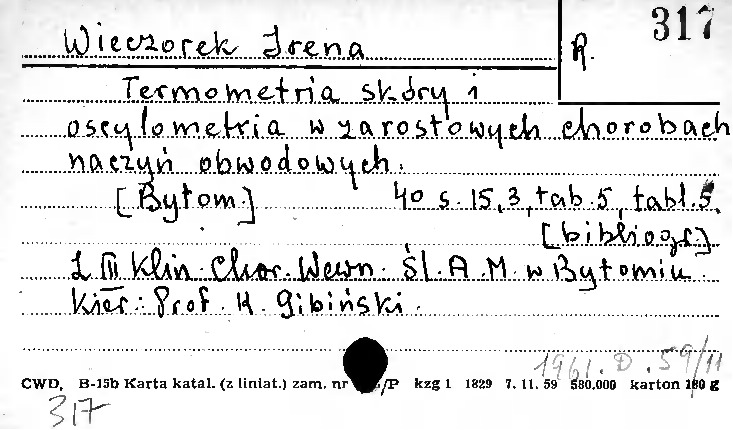 317
Wieczorek Irena
R.
Termometria skóry i
oscylometria w zarostowych chorobach
naczyń obwodowych.
[Bytom.] 40 s. 15, 3, tab. 5, tabl. 5.
[bibliogr.]
Z III Klin. Chor. Wewn. Śl. A. M. w Bytomiu.
Kier.: Prof. K. Gibiński.
1961. D. 59/11
CWD, B-15b Karta katal. (z liniat.) zam. nr /P kzg 1 1829 7. 11. 59 580.000 karton 180 g
317